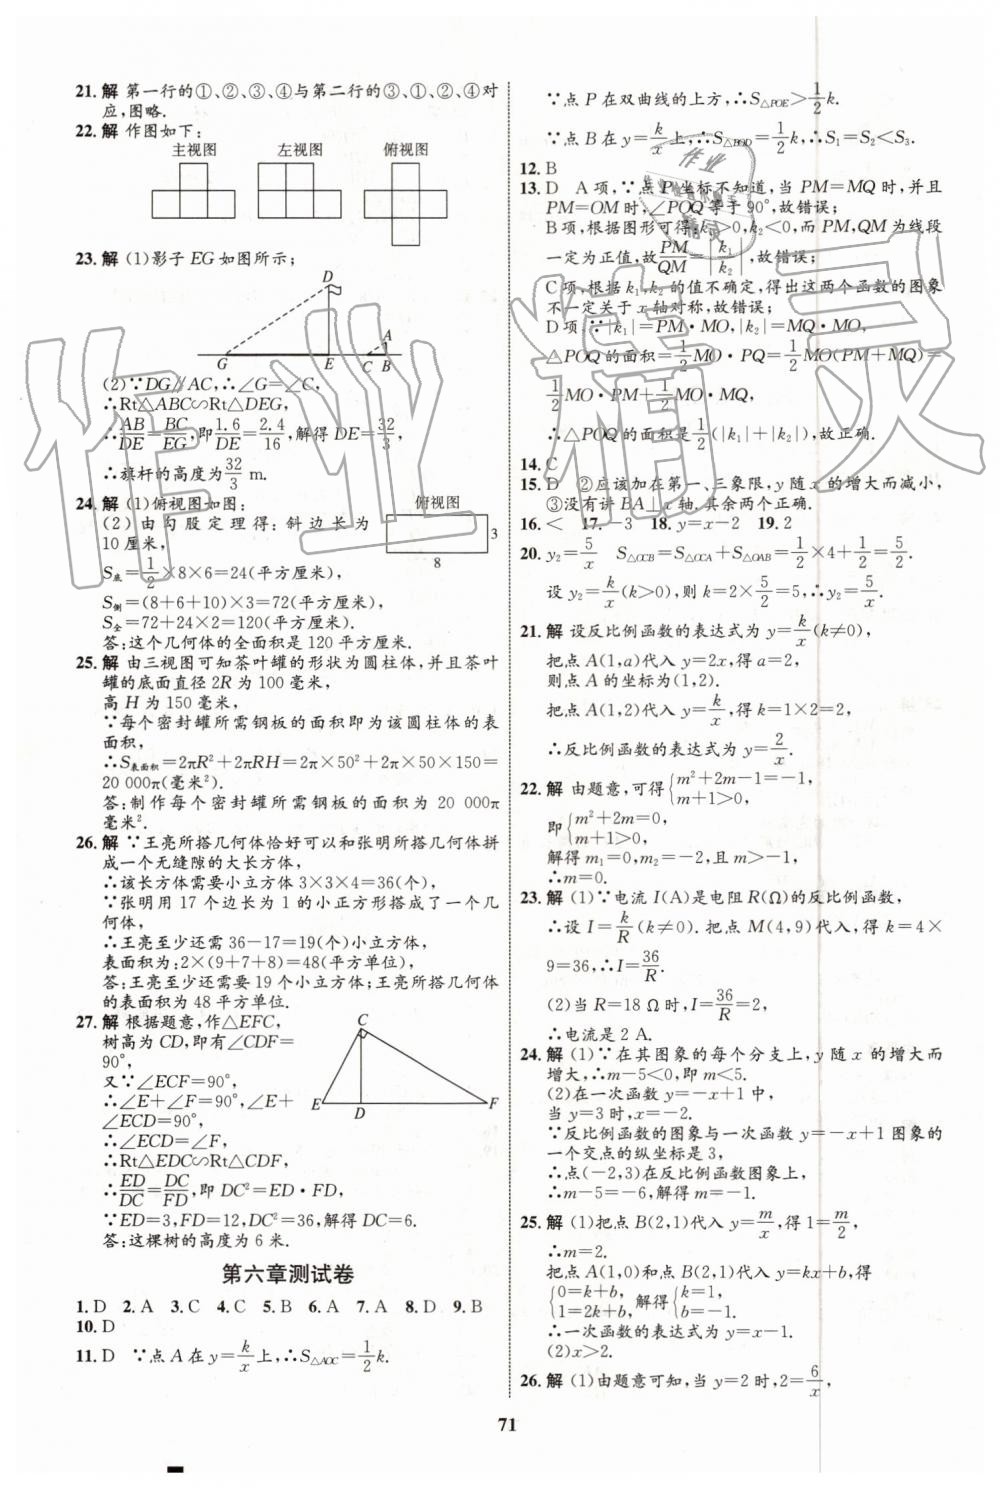 21. 解 第一行的①、②、③、④与第二行的③、①、②、④对
应,图略.
22. 解 作图如下:
主视图 左视图 俯视图
23. 解 (1)影子 EG 如图所示;
D
A
G E C B
(2)∵DG∥AC,∴∠G=∠C,
∴Rt△ABC∽Rt△DEG,
∴AB/DE=BC/EG,即1.6/DE=2.4/16,解得 DE=32/3,
∴旗杆的高度为32/3 m.
24. 解 (1)俯视图如图:
俯视图
3
8
(2)由勾股定理得:斜边长为
10 厘米,
S底=1/2×8×6=24(平方厘米),
S侧=(8+6+10)×3=72(平方厘米),
S全=72+24×2=120(平方厘米).
答:这个几何体的全面积是 120 平方厘米.
25. 解 由三视图可知茶叶罐的形状为圆柱体,并且茶叶
罐的底面直径 2R 为 100 毫米,
高 H 为 150 毫米,
∵每个密封罐所需钢板的面积即为该圆柱体的表
面积,
∴S表面积=2πR²+2πRH=2π×50²+2π×50×150=
20 000π(毫米²).
答:制作每个密封罐所需钢板的面积为 20 000π
毫米².
26. 解 ∵王亮所搭几何体恰好可以和张明所搭几何体拼
成一个无缝隙的大长方体,
∴该长方体需要小立方体 3×3×4=36(个),
∵张明用 17 个边长为 1 的小正方形搭成了一个几
何体,
∴王亮至少还需 36-17=19(个)小立方体,
表面积为:2×(9+7+8)=48(平方单位),
答:王亮至少还需要 19 个小立方体;王亮所搭几何
体的表面积为 48 平方单位.
27. 解 根据题意,作△EFC,
树高为 CD,即有∠ECF=
90°,
C
E D F
又∵∠ECF=90°,
∴∠E+∠F=90°,∠E+
∠ECD=90°,
∴∠ECD=∠F,
∴Rt△EDC∽Rt△CDF,
∴ED/DC=DC/FD,即 DC²=ED·FD,
∵ED=3,FD=12,DC²=36,解得 DC=6.
答:这棵树的高度为 6 米.
第六章测试卷
1. D 2. A 3. C 4. C 5. B 6. A 7. A 8. D 9. B
10. D
11. D ∵点 A 在 y=k/x上,∴S△AOC=1/2k.
∵点 P 在双曲线的上方,∴S△POE>1/2k.
∵点 B 在 y=k/x上,∴S△BOD=1/2k,∴S₁=S₂<S₃.
12. B
13. D A 项,∵点 P 坐标不知道,当 PM=MQ 时,并且
PM=OM 时,∠POQ 等于 90°,故错误;
B 项,根据图形可得:k₁>0,k₂<0,而 PM,QM 为线段
一定为正值,故PM/QM=|k₁/k₂|,故错误;
C 项,根据 k₁,k₂ 的值不确定,得出这两个函数的图象
不一定关于 x 轴对称,故错误;
D 项,∵|k₁|=PM·MO,|k₂|=MQ·MO,
△POQ 的面积=1/2MO·PQ=1/2MO(PM+MQ)=
1/2MO·PM+1/2MO·MQ,
∴△POQ 的面积是1/2(|k₁|+|k₂|),故正确.
14. C
15. D ②应该加在第一、三象限,y 随 x 的增大而减小,
③没有讲 BA⊥x 轴.其余两个正确.
16. < 17. -3 18. y=x-2 19. 2
20. y₂=5/x S△OCB=S△OCA+S△OAB=1/2×4+1/2=5/2.
设 y₂=k/x(k>0),则 k=2×5/2=5,∴y₂=5/x.
21. 解 设反比例函数的表达式为 y=k/x(k≠0),
把点 A(1,a)代入 y=2x,得 a=2,
则点 A 的坐标为(1,2).
把点 A(1,2)代入 y=k/x,得 k=1×2=2,
∴反比例函数的表达式为 y=2/x.
22. 解 由题意,可得{m²+2m-1=-1,
m+1>0,
即{m²+2m=0,
m+1>0.
解得 m₁=0,m₂=-2,且 m>-1,
∴m=0.
23. 解 (1)∵电流 I(A)是电阻 R(Ω)的反比例函数,
∴设 I=k/R(k≠0).把点 M(4,9)代入,得 k=4×
9=36,∴I=36/R.
(2)当 R=18 Ω 时,I=36/R=2,
∴电流是 2 A.
24. 解 (1)∵在其图象的每个分支上,y 随 x 的增大而
增大,∴m-5<0,即 m<5.
(2)在一次函数 y=-x+1 中,
当 y=3 时,x=-2.
∵反比例函数的图象与一次函数 y=-x+1 图象的
一个交点的纵坐标是 3,
∴点(-2,3)在反比例函数图象上,
∴m-5=-6,解得 m=-1.
25. 解 (1)把点 B(2,1)代入 y=m/x,得 1=m/2,
∴m=2.
把点 A(1,0)和点 B(2,1)代入 y=kx+b,得
{0=k+b, 解得{k=1,
1=2k+b, b=-1.
∴一次函数的表达式为 y=x-1.
(2)x>2.
26. 解 (1)由题意可知,当 y=2 时,2=6/x,
71
作业精灵